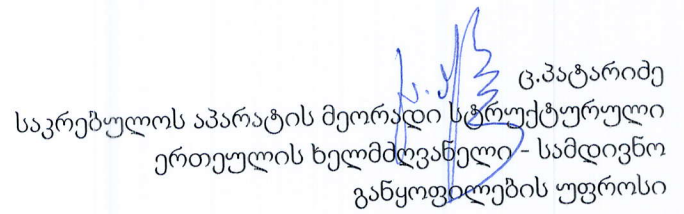 ც.პატარიძე
საკრებულოს აპარატის მეორადი სტრუქტურული
ერთეულის ხელმძღვანელი - სამდივნო
განყოფილების უფროსი